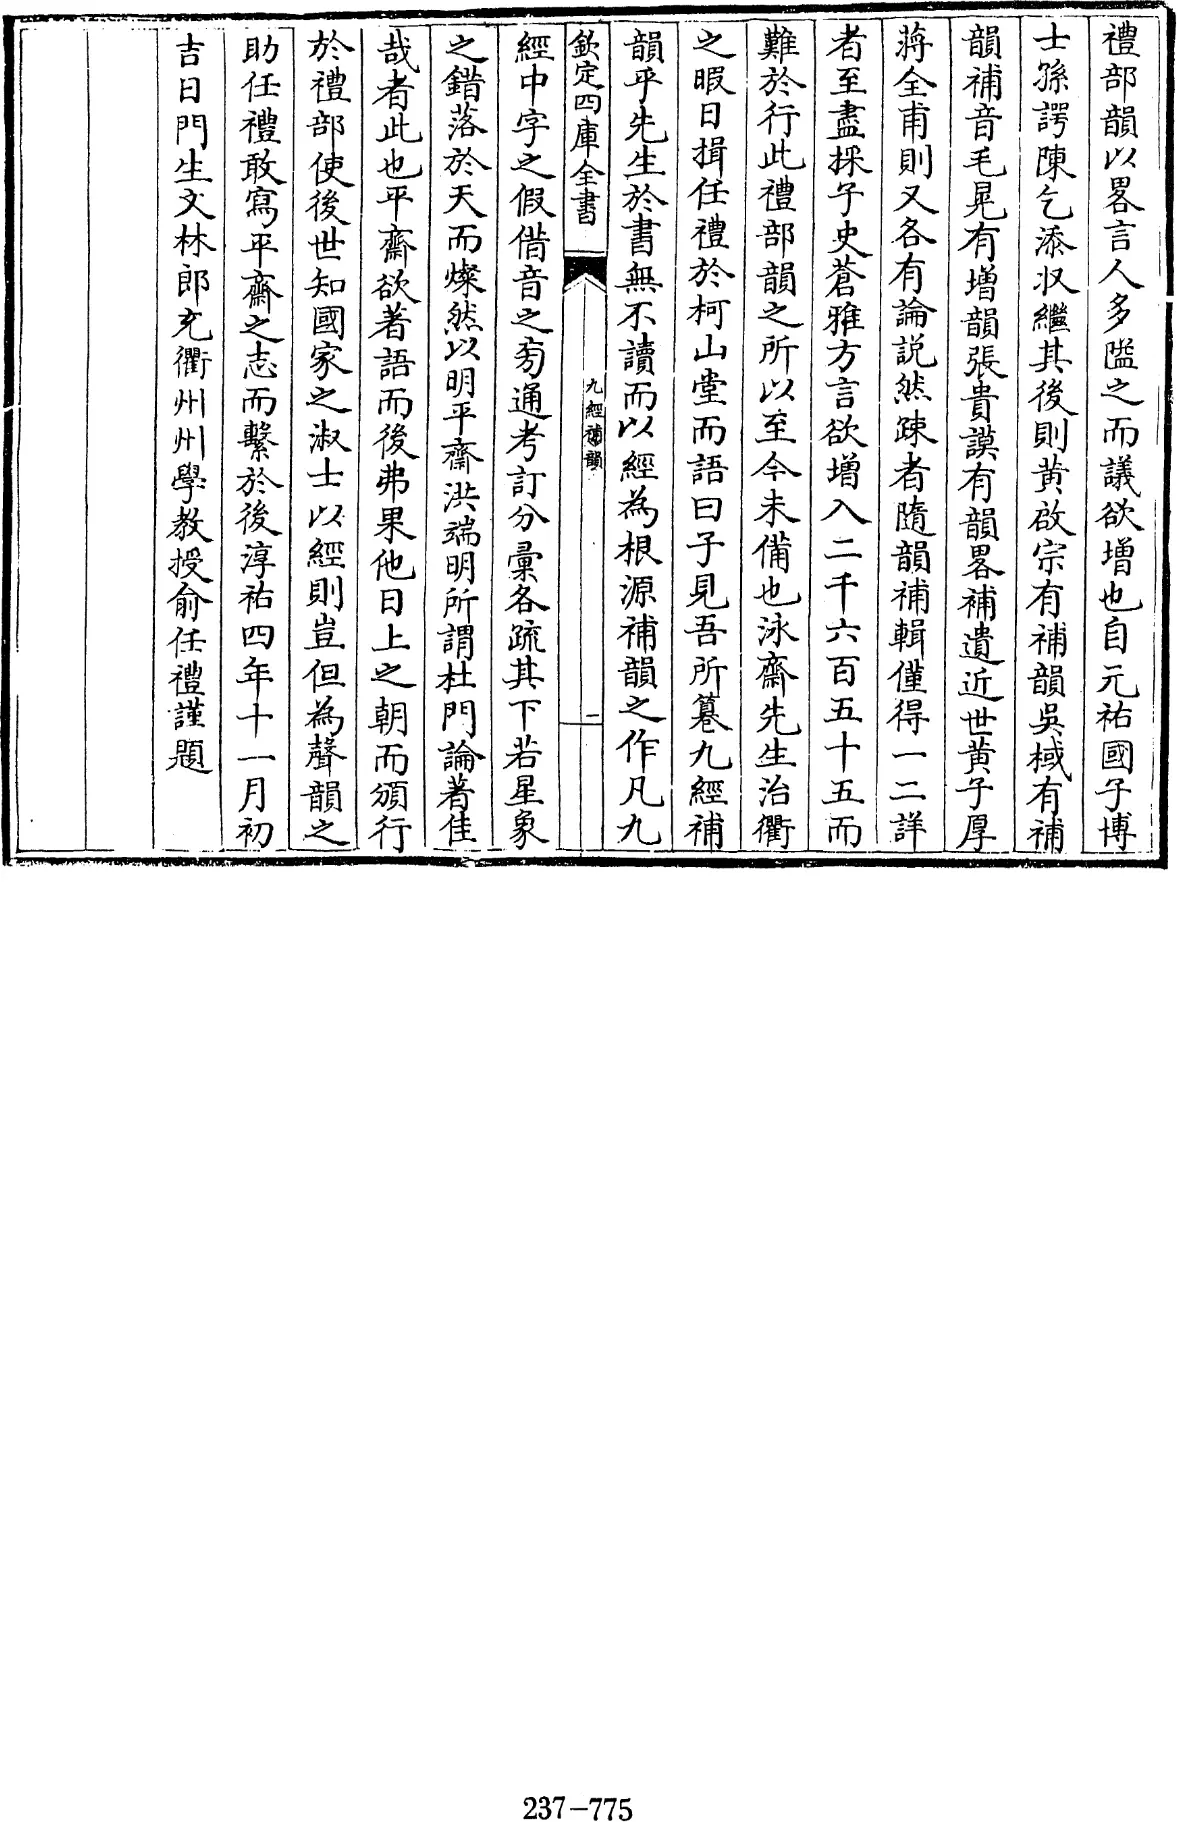 禮部韻以畧言人多隘之而議欲增也自元祐國子博
士孫諤陳乞添收繼其後則黄啟宗有補韻吳棫有補
韻補音毛晃有增韻張貴謨有韻畧補遺近世黄子厚
蔣全甫則又各有論説然疎者隨韻補輯僅得一二詳
者至盡採子史蒼雅方言欲增入二千六百五十五而
難於行此禮部韻之所以至今未備也泳齋先生治衢
之暇日揖任禮於柯山堂而語曰子見吾所纂九經補
韻乎先生於書無不讀而以經為根源補韻之作凡九
欽定四庫全書
九經補韻
二
經中字之假借音之旁通考訂分彙各疏其下若星象
之錯落於天而燦然以明平齋洪端明所謂杜門論著佳
哉者此也平齋欲著語而後弗果他日上之朝而頒行
於禮部使後世知國家之淑士以經則豈但為聲韻之
助任禮敢寫平齋之志而繫於後淳祐四年十一月初
吉日門生文林郎充衢州州學教授俞任禮謹題
237-775